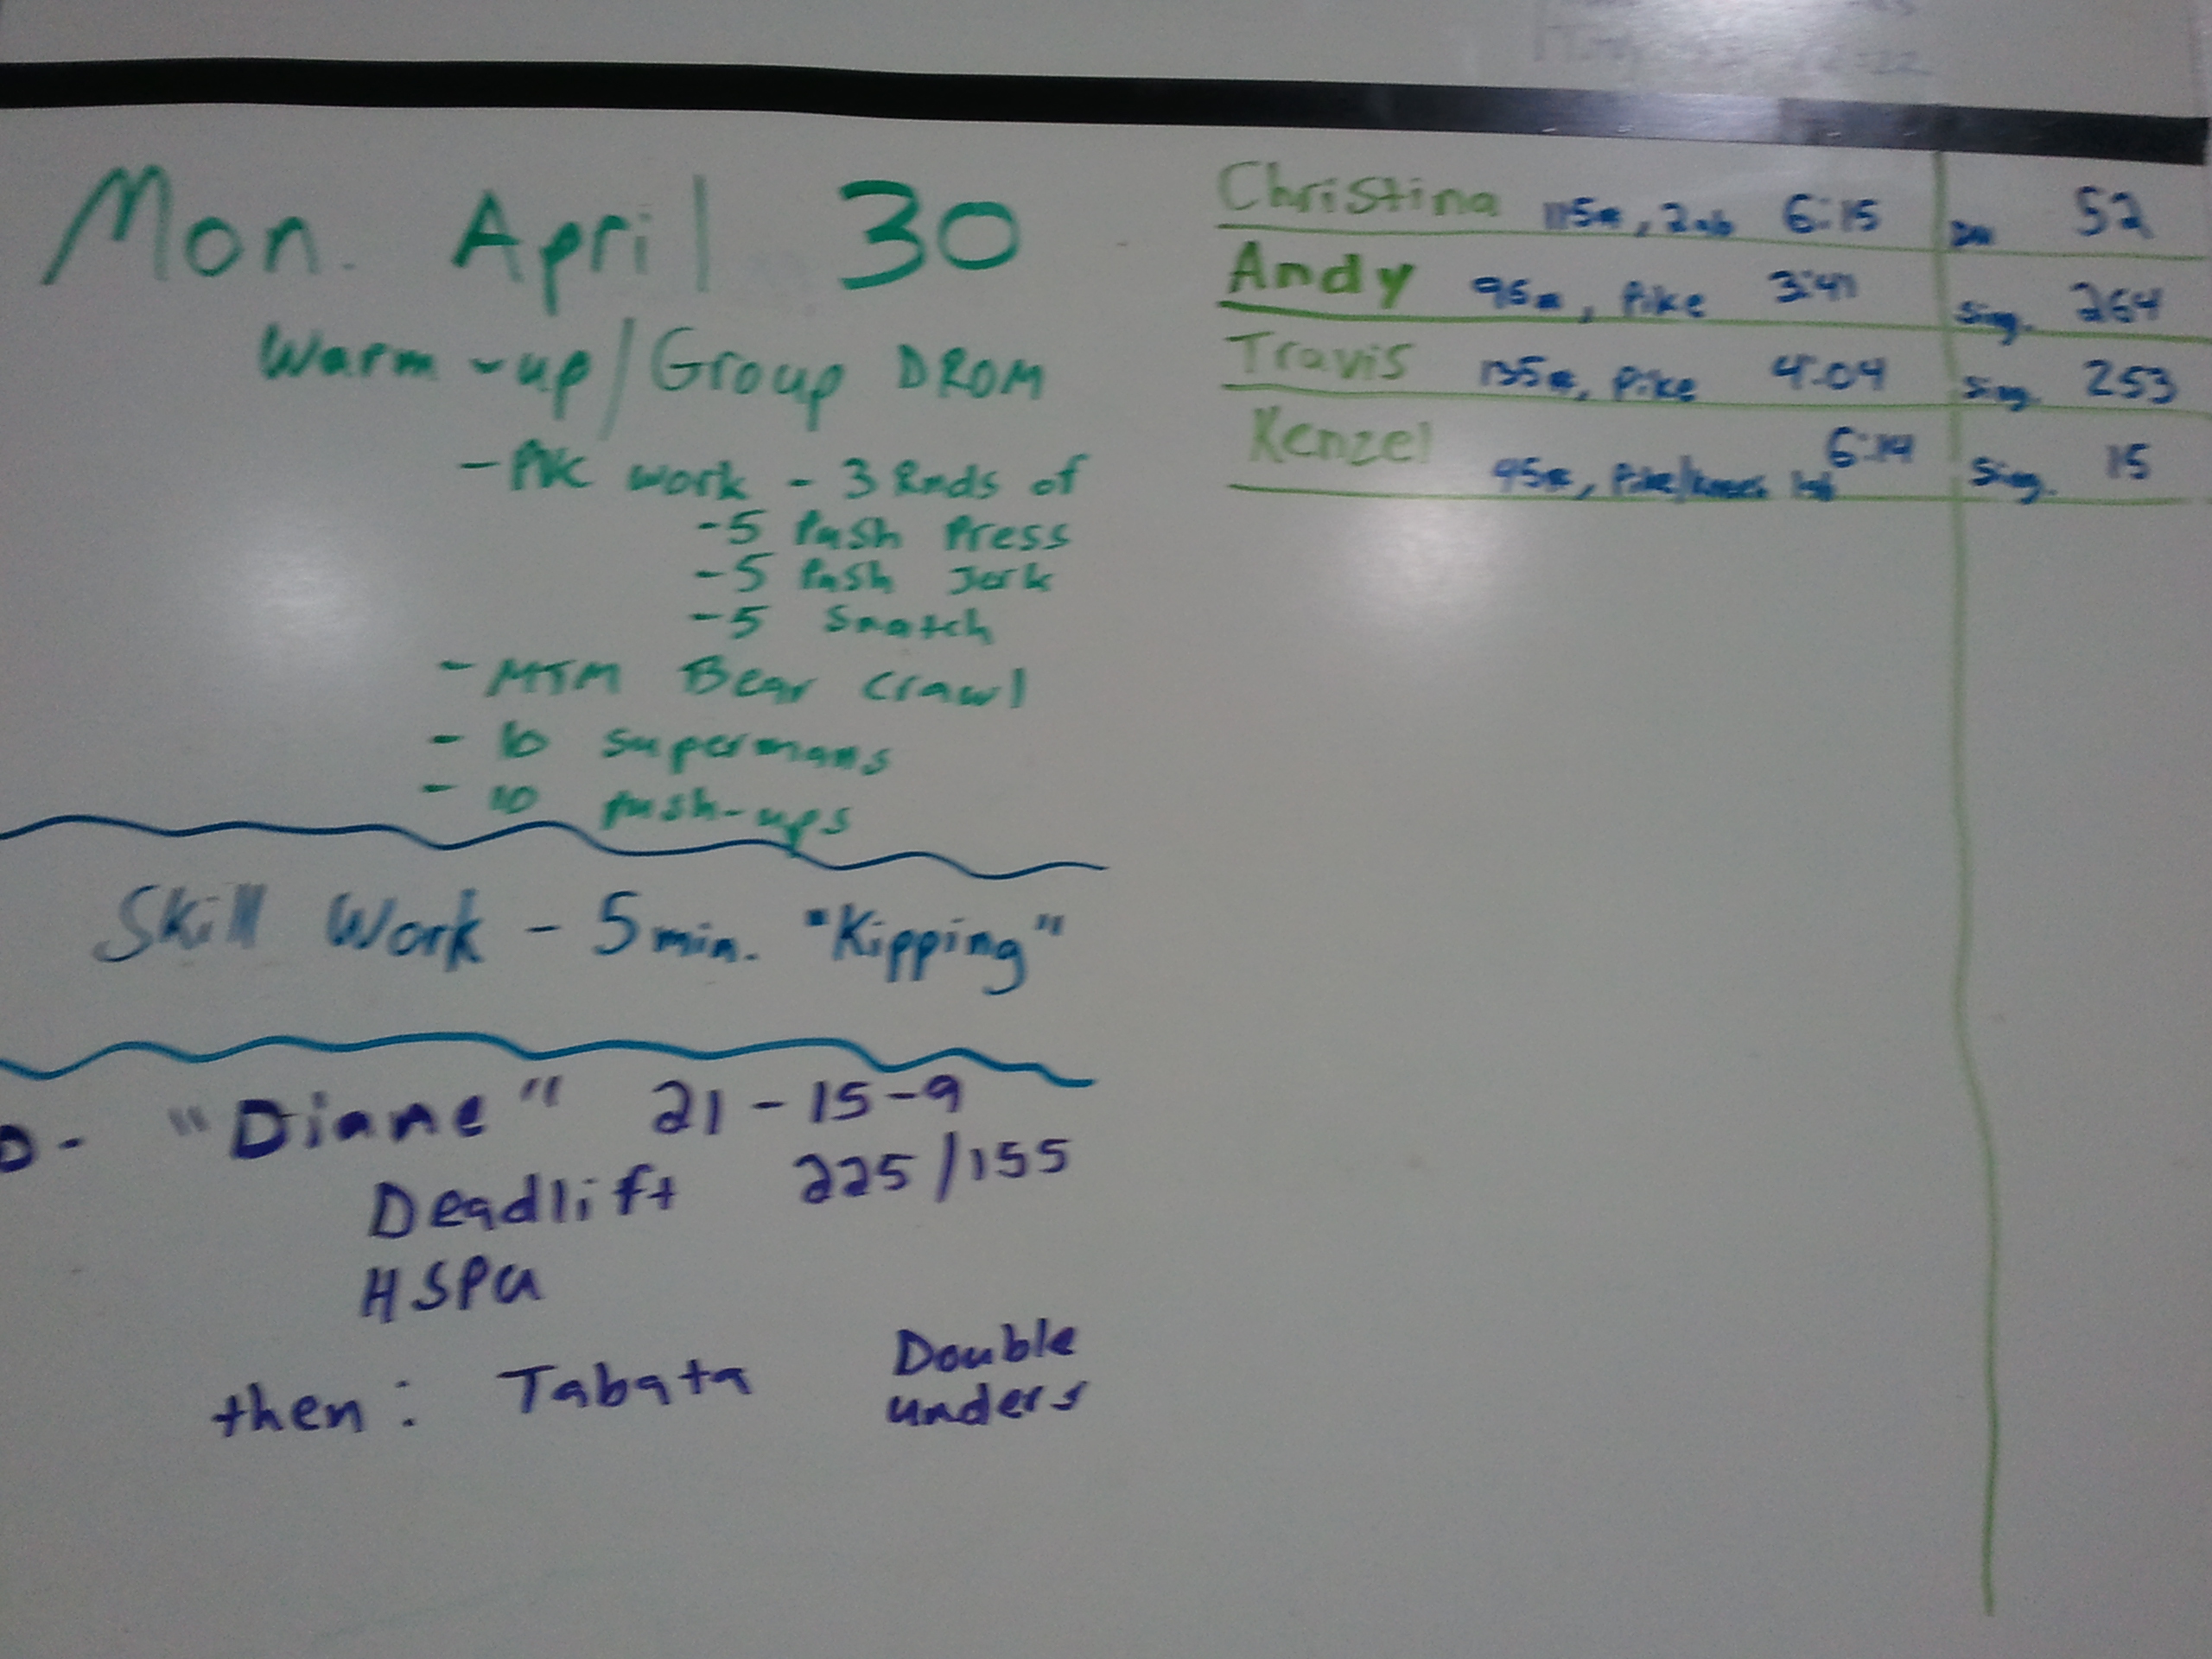 Mon. April 30
Warm-up/Group DROM
- PVC work - 3 Rnds of
-5 Push Press
-5 Push Jerk
-5 Snatch
- MTM Bear Crawl
- 10 supermans
- 10 push-ups
Skill Work - 5 min. "Kipping"
"Diane" 21-15-9
Deadlift 225/155
HSPU
then: Tabata Double
unders
Christina 115#, 2ab 6:15 DU 52
Andy 95#, Pike 3:41 Sing. 264
Travis 135#, Pike 4:04 Sing. 253
Kenzel 95#, Pike/knees 6:14 Sing. 15